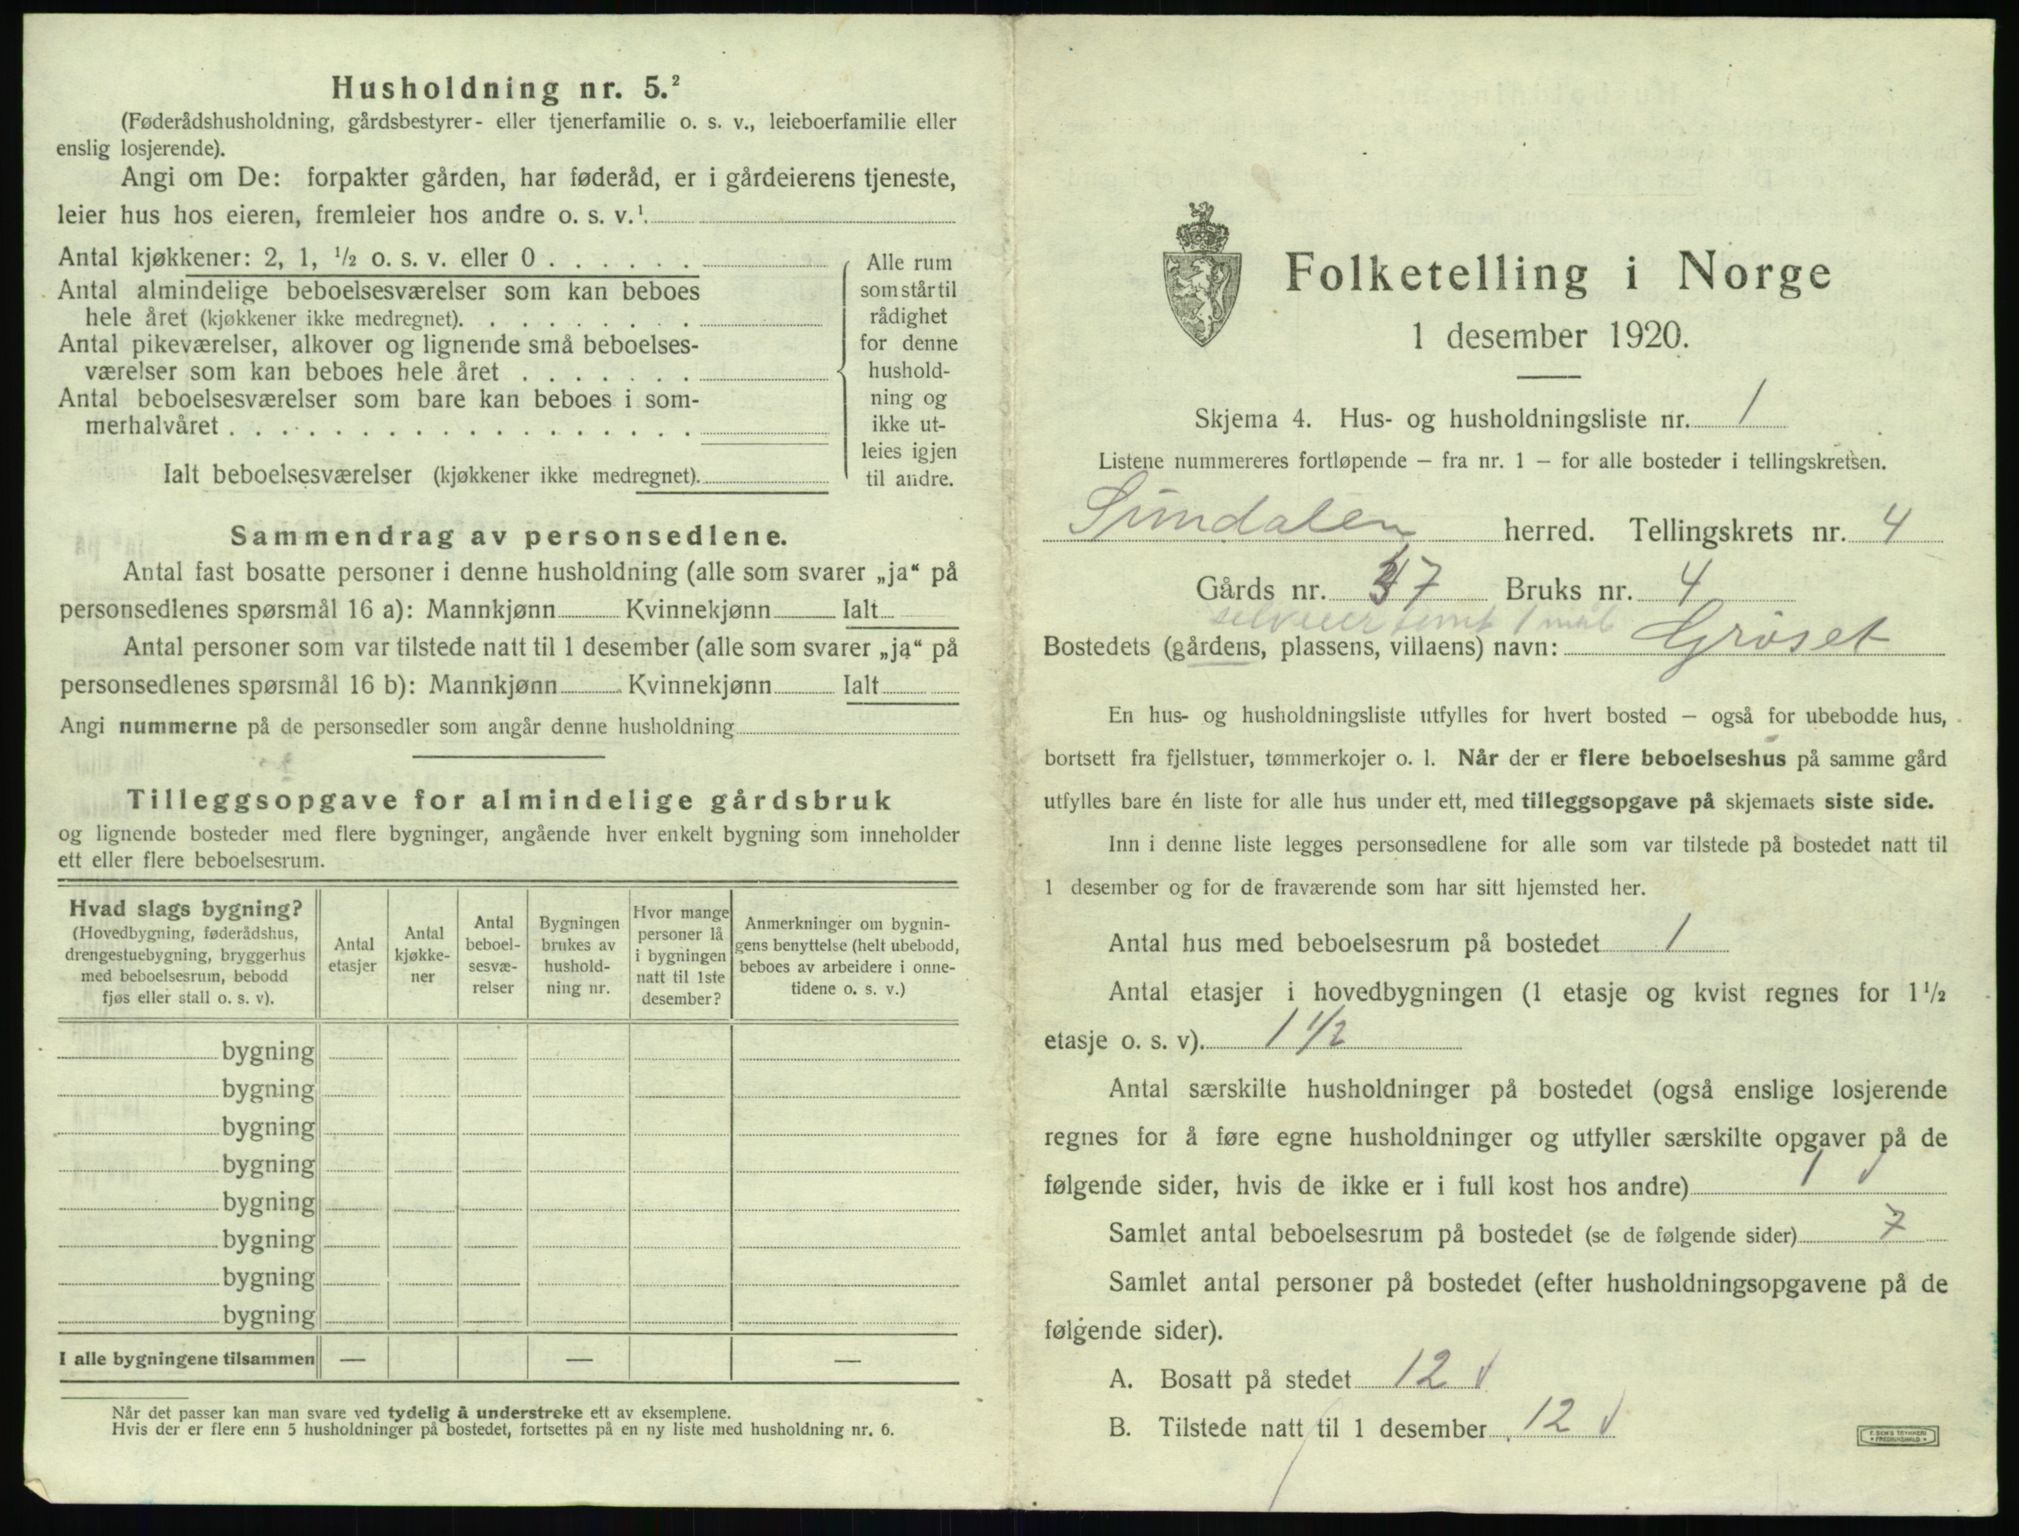 Husholdning nr. 5.²
(Føderådshusholdning, gårdsbestyrer- eller tjenerfamilie o. s. v., leieboerfamilie eller
enslig losjerende).
Angi om De: forpakter gården, har føderåd, er i gårdeierens tjeneste,
leier hus hos eieren, fremleier hos andre o. s. v.¹
Antal kjøkkener: 2, 1, ½ o. s. v. eller 0 . . . . . .
Antal almindelige beboelsesværelser som kan beboes
hele året (kjøkkener ikke medregnet). . . . . . . . .
Antal pikeværelser, alkover og lignende små beboelses-
værelser som kan beboes hele året . . . . . . .
Antal beboelsesværelser som bare kan beboes i som-
merhalvåret . . . . . . . . . . . . . . . . . .
Ialt beboelsesværelser (kjøkkener ikke medregnet).
Alle rum
som står til
rådighet
for denne
hushold-
ning og
ikke ut-
leies igjen
til andre.
Sammendrag av personsedlene.
Antal fast bosatte personer i denne husholdning (alle som svarer „ja“ på
personsedlenes spørsmål 16 a): Mannkjønn Kvinnekjønn Ialt
Antal personer som var tilstede natt til 1 desember (alle som svarer „ja“ på
personsedlenes spørsmål 16 b): Mannkjønn Kvinnekjønn Ialt
Angi nummerne på de personsedler som angår denne husholdning
Tilleggsopgave for almindelige gårdsbruk
og lignende bosteder med flere bygninger, angående hver enkelt bygning som inneholder
ett eller flere beboelsesrum.
Hvad slags bygning?
(Hovedbygning, føderådshus,
drengestuebygning, bryggerhus
med beboelsesrum, bebodd
fjøs eller stall o. s. v).
Antal
etasjer
Antal
kjøkke-
ner
Antal
beboel-
sesvæ-
relser
Bygningen
brukes av
hushold-
ning nr.
Hvor mange
personer lå
i bygningen
natt til 1ste
desember?
Anmerkninger om bygnin-
gens benyttelse (helt ubebodd,
beboes av arbeidere i onne-
tidene o. s. v.)
bygning
bygning
bygning
bygning
bygning
bygning
bygning
bygning
I alle bygningene tilsammen — — —
Når det passer kan man svare ved tydelig å understreke ett av eksemplene.
Hvis der er flere enn 5 husholdninger på bostedet, fortsettes på en ny liste med husholdning nr. 6.
Folketelling i Norge
1 desember 1920.
Skjema 4. Hus- og husholdningsliste nr. 1
Listene nummereres fortløpende – fra nr. 1 – for alle bosteder i tellingskretsen.
Sundalen herred. Tellingskrets nr. 4
Gårds nr. 47 Bruks nr. 4
selveier tomt 1 mål
Bostedets (gårdens, plassens, villaens) navn: Grøset
En hus- og husholdningsliste utfylles for hvert bosted – også for ubebodde hus,
bortsett fra fjellstuer, tømmerkojer o. l. Når der er flere beboelseshus på samme gård
utfylles bare én liste for alle hus under ett, med tilleggsopgave på skjemaets siste side.
Inn i denne liste legges personsedlene for alle som var tilstede på bostedet natt til
1 desember og for de fraværende som har sitt hjemsted her.
Antal hus med beboelsesrum på bostedet 1
Antal etasjer i hovedbygningen (1 etasje og kvist regnes for 1½
etasje o. s. v). 1 1/2
Antal særskilte husholdninger på bostedet (også enslige losjerende
regnes for å føre egne husholdninger og utfyller særskilte opgaver på de
følgende sider, hvis de ikke er i full kost hos andre) 1
Samlet antal beboelsesrum på bostedet (se de følgende sider) 7
Samlet antal personer på bostedet (efter husholdningsopgavene på de
følgende sider).
A. Bosatt på stedet 12
B. Tilstede natt til 1 desember 12